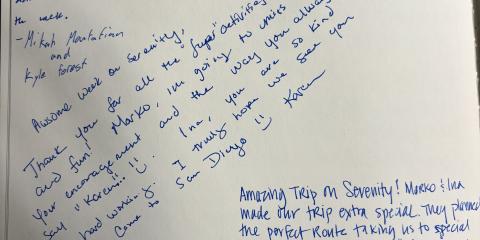 the week.
- Mikah
and
Kyle Forest
Awsome week on Serenity,
Thank you for all the "fupa" activities
and fun! Marko, im going to miss
your encouragement and the way you always
say "Karen"!! Ina, you are so kind
hard working. I truly hope we see you
Come to San Diego :) Karen
Amazing Trip on Serenity! Marko & Ina
made our trip extra special. They planned
the perfect Route taking us to special